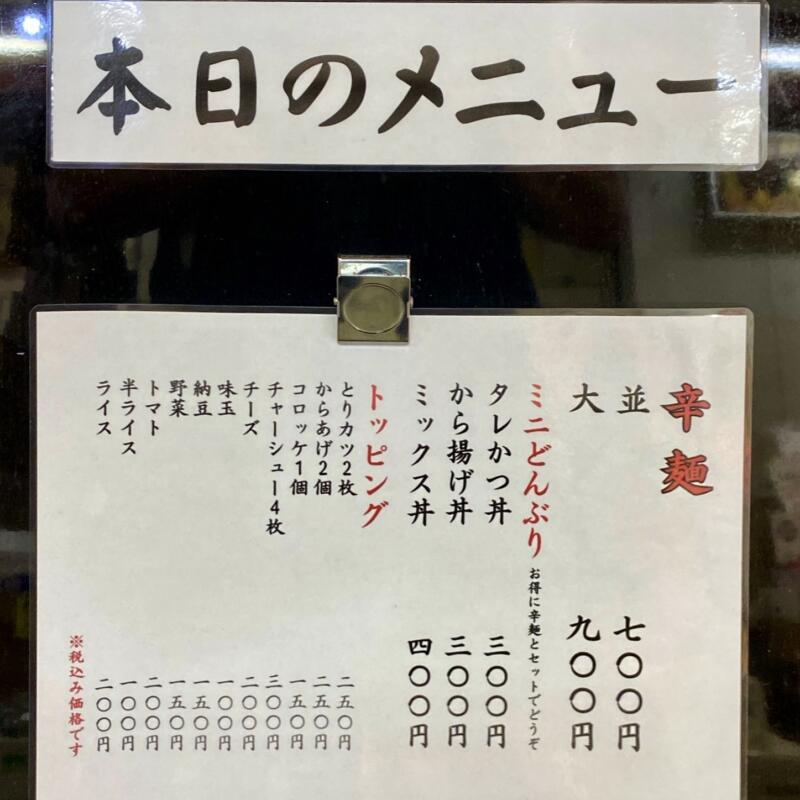 本日のメニュー
辛麺
並 七〇〇円
大 九〇〇円
ミニどんぶり お得に辛麺とセットでどうぞ
タレかつ丼 三〇〇円
から揚げ丼 三〇〇円
ミックス丼 四〇〇円
トッピング
とりカツ2枚 二五〇円
からあげ2個 二五〇円
コロッケ1個 一五〇円
チャーシュー4枚 三〇〇円
チーズ 二〇〇円
味玉 一〇〇円
納豆 一五〇円
野菜 一五〇円
トマト 二〇〇円
半ライス 一〇〇円
ライス 二〇〇円
※税込み価格です